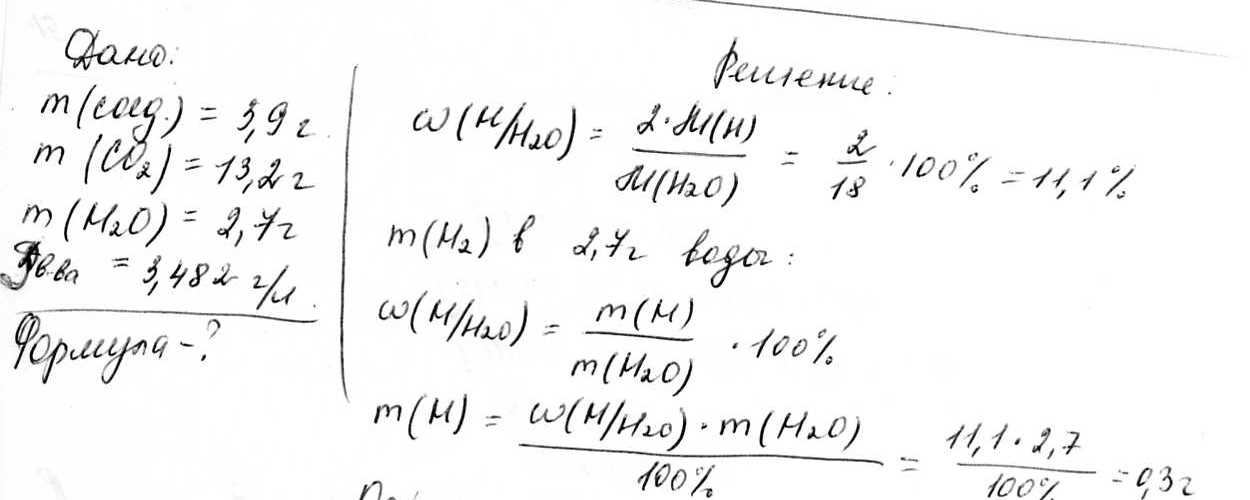 Дано:
m(соед.) = 3,9 г.
m (CO₂) = 13,2 г
m (H₂O) = 2,7 г
ρв.ва = 3,482 г/л.
Формула - ?
Решение:
ω(H/H₂O) = 2·M(H) / M(H₂O) = 2/18 · 100% = 11,1%
m(H₂) в 2,7г воды:
ω(H/H₂O) = m(H) / m(H₂O) · 100%
m(H) = ω(H/H₂O) · m(H₂O) / 100% = 11,1 · 2,7 / 100% = 0,3 г